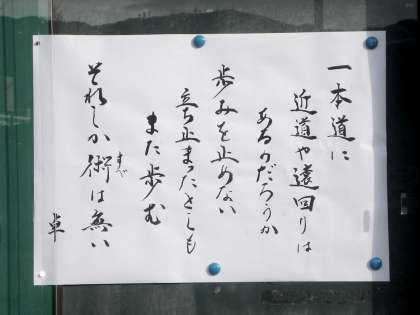 一本道に
近道や遠回りは
あるのだろうか
歩みを止めない
立ち止まったとしても
また歩む
それしか術は無い
すべ
卓